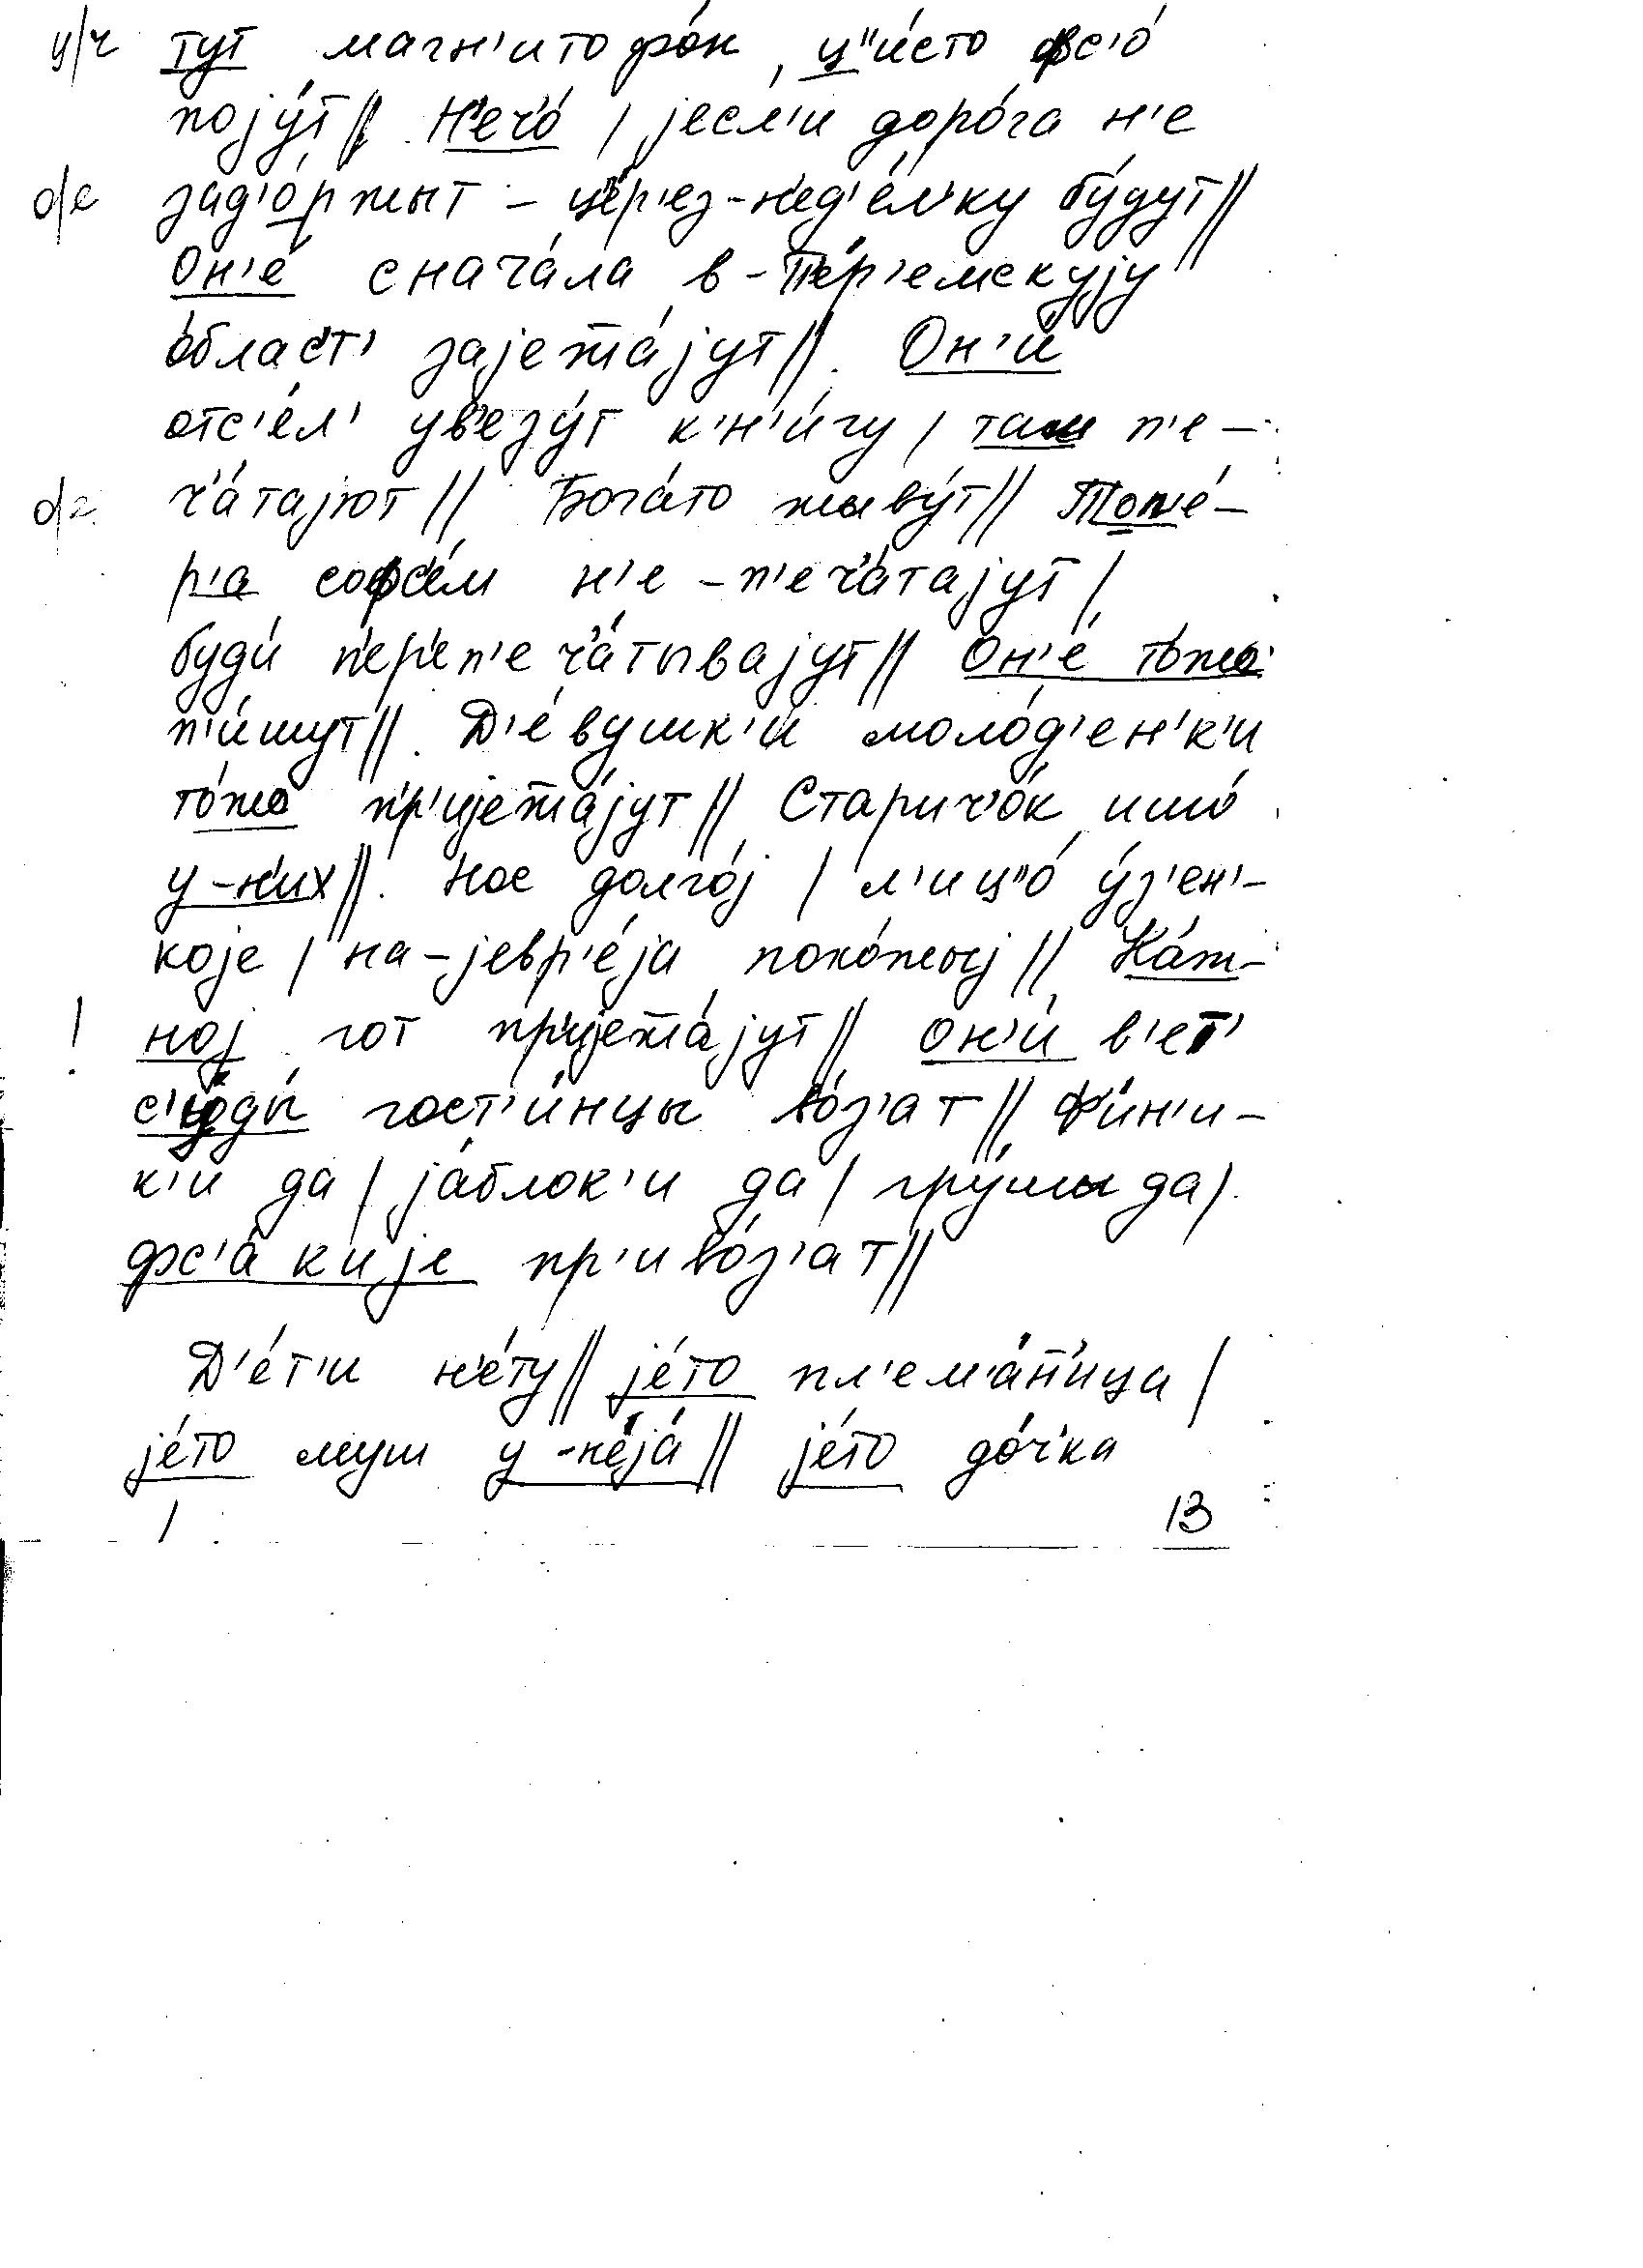 ц/ч тут магн'итофо́н, ц"и́сто фс'о́
појýт// Н'ечо́ / јесл'и доро́га н'е
о/е зад'о́ржыт – це́р'ез-н'ед'е́л'ку бýдут//
Он'е́ снача́ла в-Пе́р'емскују
о́бласт' зајежа́јут// Он'и́
отс'е́л' ув'езýт к'н'и́гу / там п'е-
о/е ч'а́тајут// Бога́то жывýт// Топ'е́-
р'а софс'е́м н'е-п'еч'а́тајут /
буди́ п'ер'еп'еч'а́тывајут// Он'е́ то́жо
п'и́шут// Д'е́вушк'и моло́д'ен'к'и
то́жо пр'ијежа́јут// Старич'о́к ишо́
у-н'их// Нос долго́ј / л'иц"о́ ýз'ен'-
које / на-јевр'е́ја похо́жыј// Ка́ж-
! ној гот пр'ијежа́јут// он'и́ в'ет'
с'уды́ гост'и́нцы во́з'ат// Ф'и́н'и-
к'и да / ја́блок'и да / грýшы да /
фс'а́кије пр'иво́з'ат//
Д'е́т'и н'е́ту// је́то пл'ем'а́н'ица /
је́то муш у-н'еја́// је́то до́ч'ка
/ 13